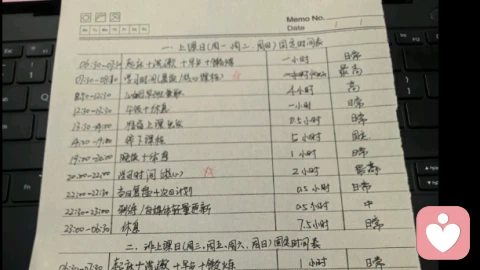 Memo No.
Date / /
一、上课日(周一、周二、周四)固定时间表
06:30-07:30 起床+洗漱+早餐+锻炼 一小时 日常
07:30-08:30 学习时间 最高
8:30-12:30 4小时 高
12:30-13:30 午餐+休息 一小时 日常
13:30-14:00 准备上课 0.5小时 日常
14:00-19:00 线下课程 5小时 固定
19:00-20:00 晚饭+休息 1小时 日常
20:00-22:00 学习时间 2小时 最高
22:00-22:30 当日复盘+次日计划 0.5小时 日常
22:30-23:00 /自媒体轻量更新 0.5小时 中
23:00-06:30 休息 7.5小时 日常
二、非上课日(周三、周五、周六、周日)固定时间表
06:30-07:30 起床+洗漱+早餐+锻炼 1小时 日常